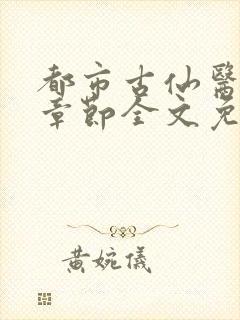 都市古仙醫
章節全文免
黃婉儀